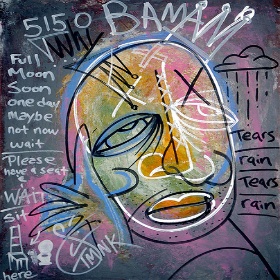 5150 BAMAM
TWIN
Full
Moon
Soon
one day
maybe
not now
wait
Please
have a seat
WAIT
Sit
here
TMNK
Tears
rain
Tears
rain